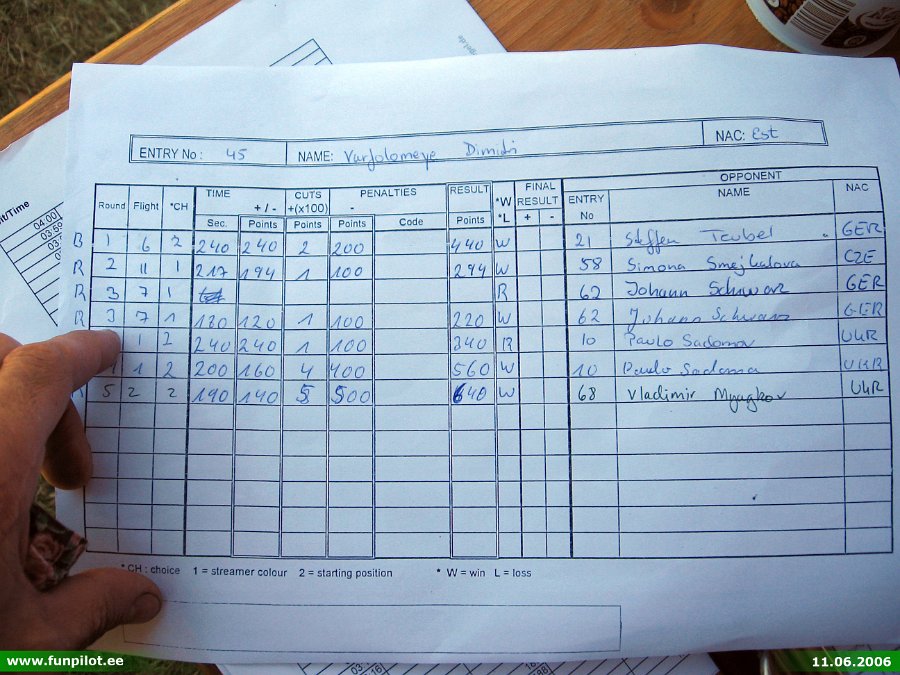 ENTRY No : 45 NAME: Varfolomeye Dimitri NAC: Est
OPPONENT
Round Flight *CH TIME + / - CUTS +(x100) PENALTIES - RESULT *W *L FINAL RESULT ENTRY No NAME NAC
Sec. Points Points Points Code Points + -
B 1 6 2 240 240 2 200 440 W 21 Steffen Teubel GER
R 2 11 1 217 194 1 100 294 W 58 Simona Smejkalova CZE
R 3 7 1 R 62 Johann Schwarz GER
R 3 7 1 180 120 1 100 220 W 62 Johann Schwarz GER
1 2 240 240 1 100 340 R 10 Pavlo Sadoma UKR
1 2 200 160 4 400 560 W 10 Pavlo Sadoma UKR
5 2 2 190 140 5 500 640 W 68 Vladimir Myagkov UKR
* CH : choice 1 = streamer colour 2 = starting position * W = win L = loss
www.funpilot.ee 11.06.2006